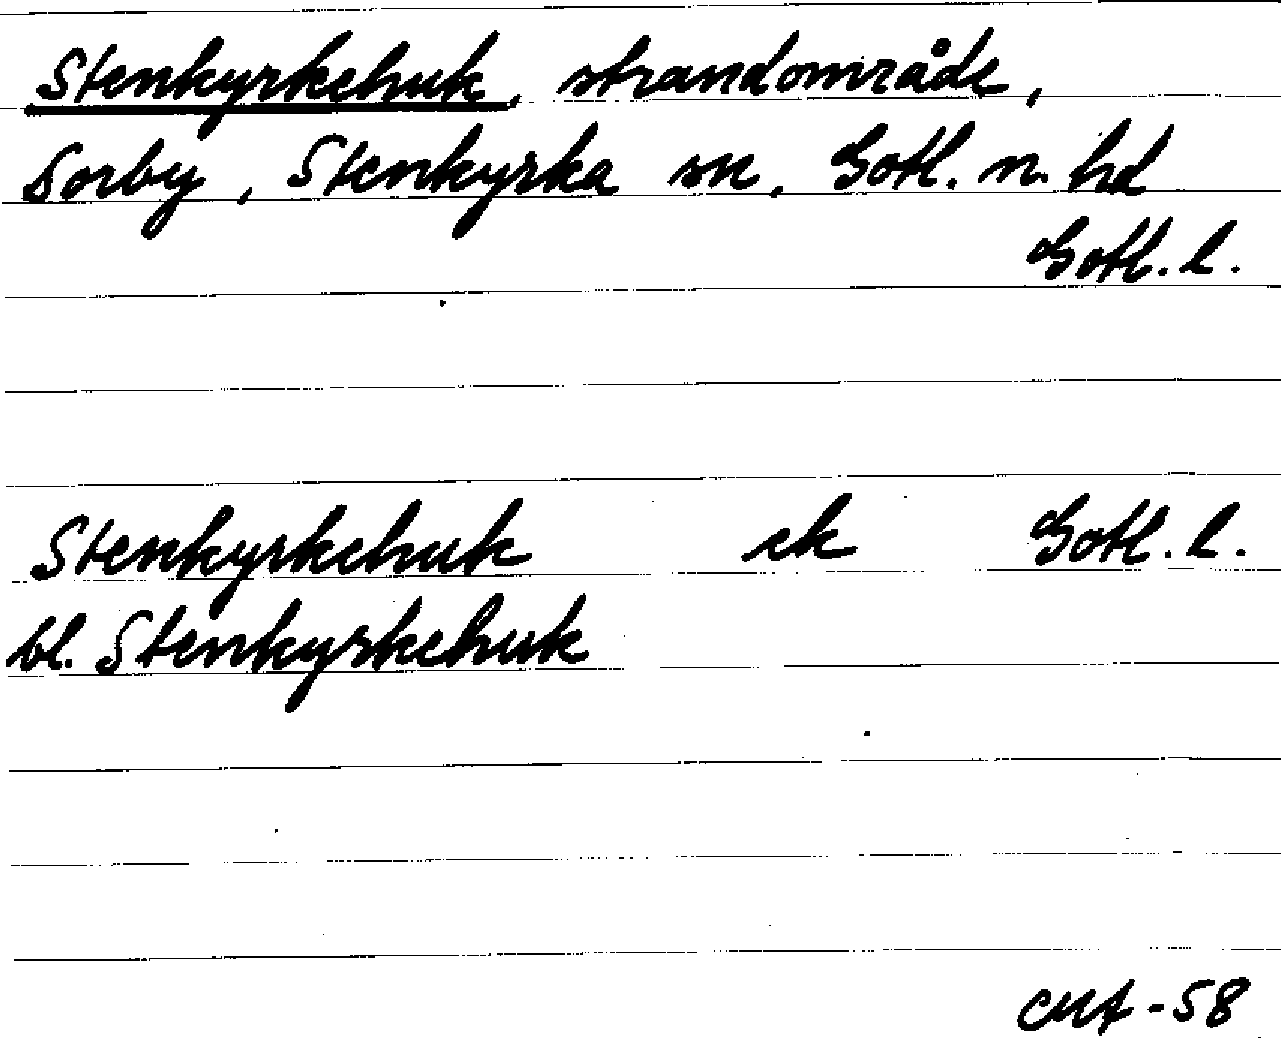 Stenkyrkehuk, strandområde,
Sorby, Stenkyrka sn, Gotl. n. hd
Gotl. l.
Stenkyrkehuk ek Gotl. l.
bl. Stenkyrkehuk
-58